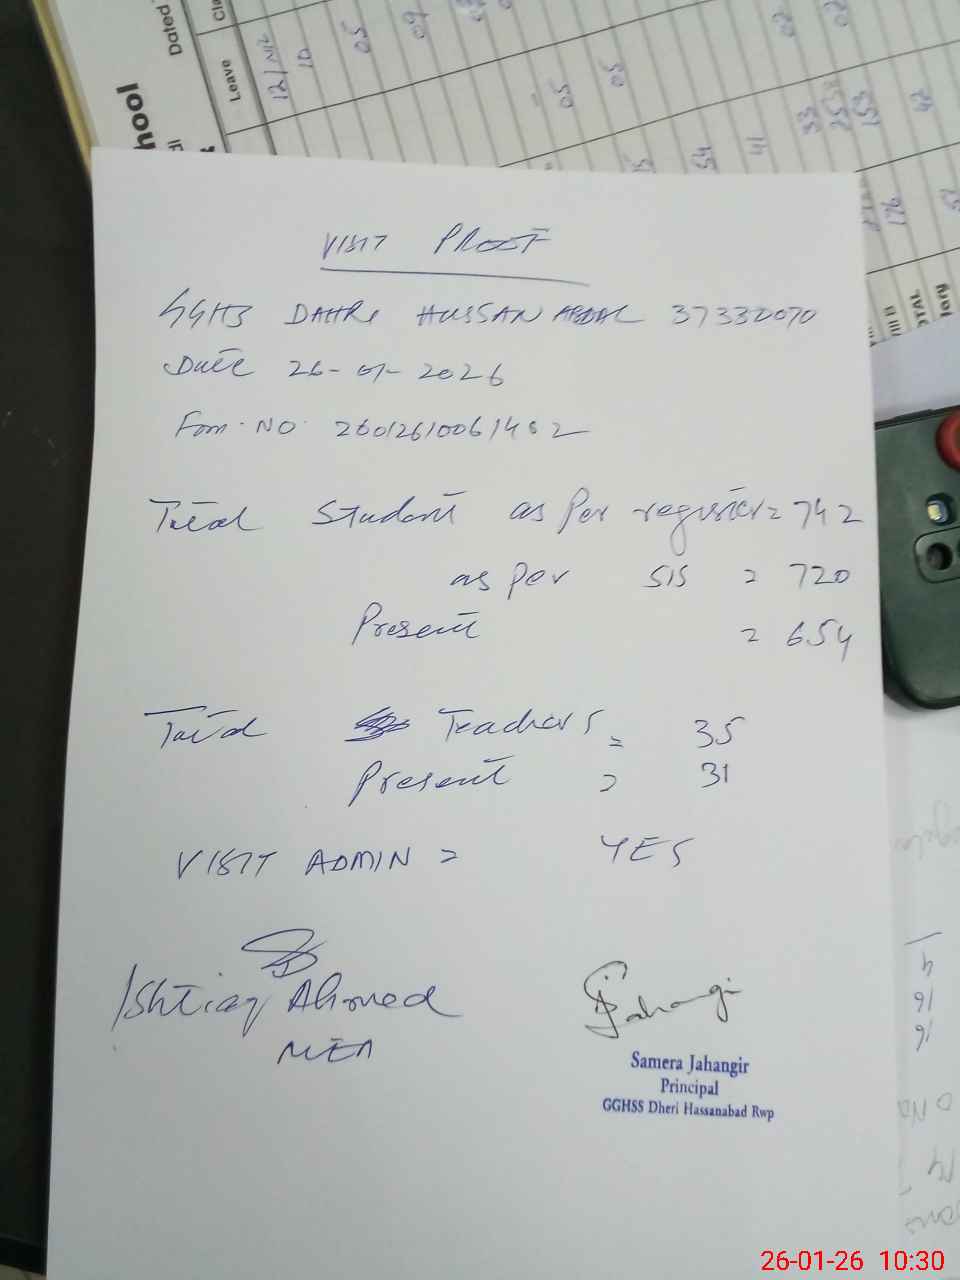 hool
Dated
Leave
Cla
12/Nil
10
05
09
05
05
54
41
33
153
176
42
VISIT PROOF
GGHS DAHRI HUSSAN ABDAL 37330070
Date 26-01-2026
Form. NO. 26012610061402
Total Student as Per register = 742
as per SIS = 720
Present = 654
Total Teachers = 35
Present = 31
VISIT ADMIN = YES
Ishtiaq Ahmed
MEA
Jahangir
Samera Jahangir
Principal
GGHSS Dheri Hassanabad Rwp
26-01-26 10:30